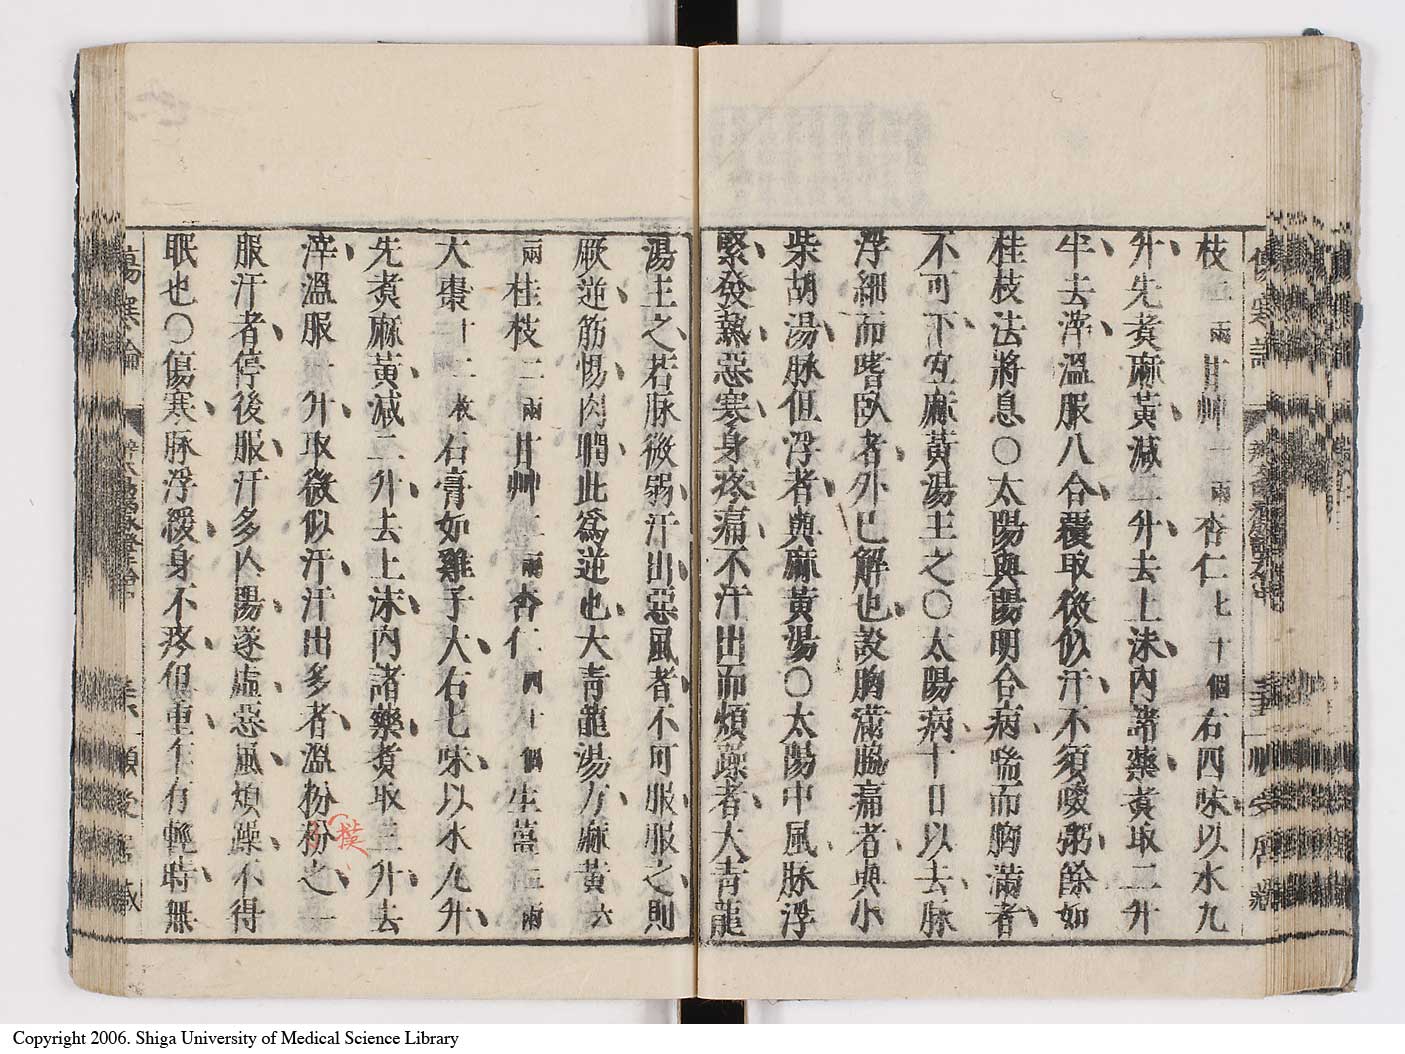 枝二兩甘艸一兩杏仁七十個右四味以水九
升先煮麻黃減二升去上沫內諸藥煮取二升
半去滓溫服八合覆取微似汗不須啜粥餘如
桂枝法將息○太陽與陽明合病喘而胸滿者
不可下宜麻黃湯主之○太陽病十日以去脉
浮細而嗜臥者外已解也設胸滿脇痛者與小
柴胡湯脉但浮者與麻黃湯○太陽中風脉浮
緊發熱惡寒身疼痛不汗出而煩躁者大青龍
湯主之若脉微弱汗出惡風者不可服服之則
厥逆筋惕肉瞤此爲逆也大青龍湯方麻黃六
兩桂枝二兩甘艸二兩杏仁四十個生薑三兩
大棗十二枚石膏如雞子大右七味以水九升
先煮麻黃減二升去上沫內諸藥煮取三升去
滓溫服一升取微似汗汗出多者溫粉粉之一
撲
服汗者停後服汗多亡陽遂虛惡風煩躁不得
眠也○傷寒脉浮緩身不疼但重乍有輕時無
傷寒論
Copyright 2006. Shiga University of Medical Science Library